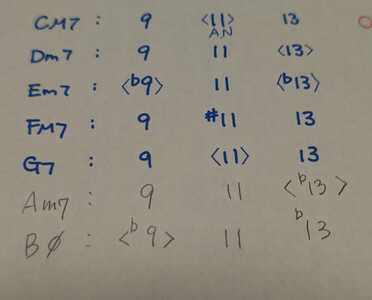 CM7 : 9 <11> 13
AN
Dm7 : 9 11 <13>
Em7 : <b9> 11 <b13>
FM7 : 9 #11 13
G7 : 9 <11> 13
Am7 : 9 11 <b13>
BØ : <b9> 11 b13